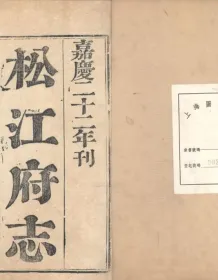 嘉慶二十二年刊
松江府志